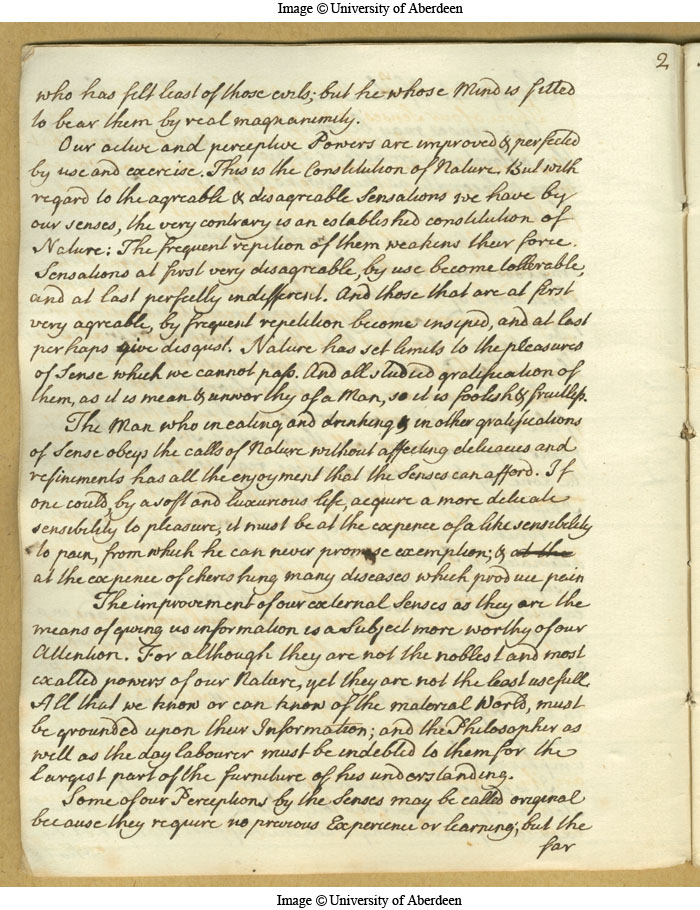 Image © University of Aberdeen
2
who has felt least of those evils; but he whose Mind is fitted
to bear them by real magnanimity.
Our active and perceptive Powers are improved & perfected
by use and exercise. This is the Constitution of Nature. But with
regard to the agreable & disagreable Sensations we have by
our senses, the very contrary is an established constitution of
Nature: The frequent repition of them weakens their force.
Sensations at first very disagreable, by use become tollerable,
and at last perfectly indifferent. And those that are at first
very agreable, by frequent repetition become insiped, and at last
perhaps give disgust. Nature has set limits to the pleasures
of Sense which we cannot pass. And all studied gratification of
them, as it is mean & unworthy of a Man, so it is foolish & fruitless.
The Man who in eating and drinking & in other gratifications
of Sense obeys the calls of Nature without affecting delicacies and
refinements has all the enjoyment that the Senses can afford. If
one could, by a soft and luxurious life, acquire a more delicate
sensibility to pleasure, it must be at the expence of a like sensibility
to pain, from which he can never promise exemption; & at the
at the expence of cherishing many diseases which produce pain
The improvement of our external Senses as they are the
means of giving us information is a Subject more worthy of our
Attention. For although they are not the noblest and most
exalted powers of our Nature, yet they are not the least usefull.
All that we know or can know of the material World, must
be grounded upon their Information; and the Philosopher as
well as the day labourer must be indebted to them for the
largest part of the furniture of his understanding.
Some of our Perceptions by the Senses may be called original
because they require no previous Experience or learning; but the
far
Image © University of Aberdeen